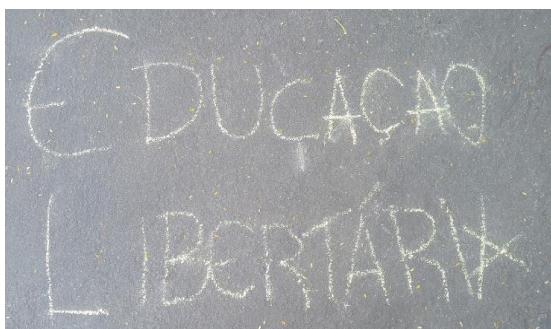 EDUÇAÇAO
LIBERTÁRIA